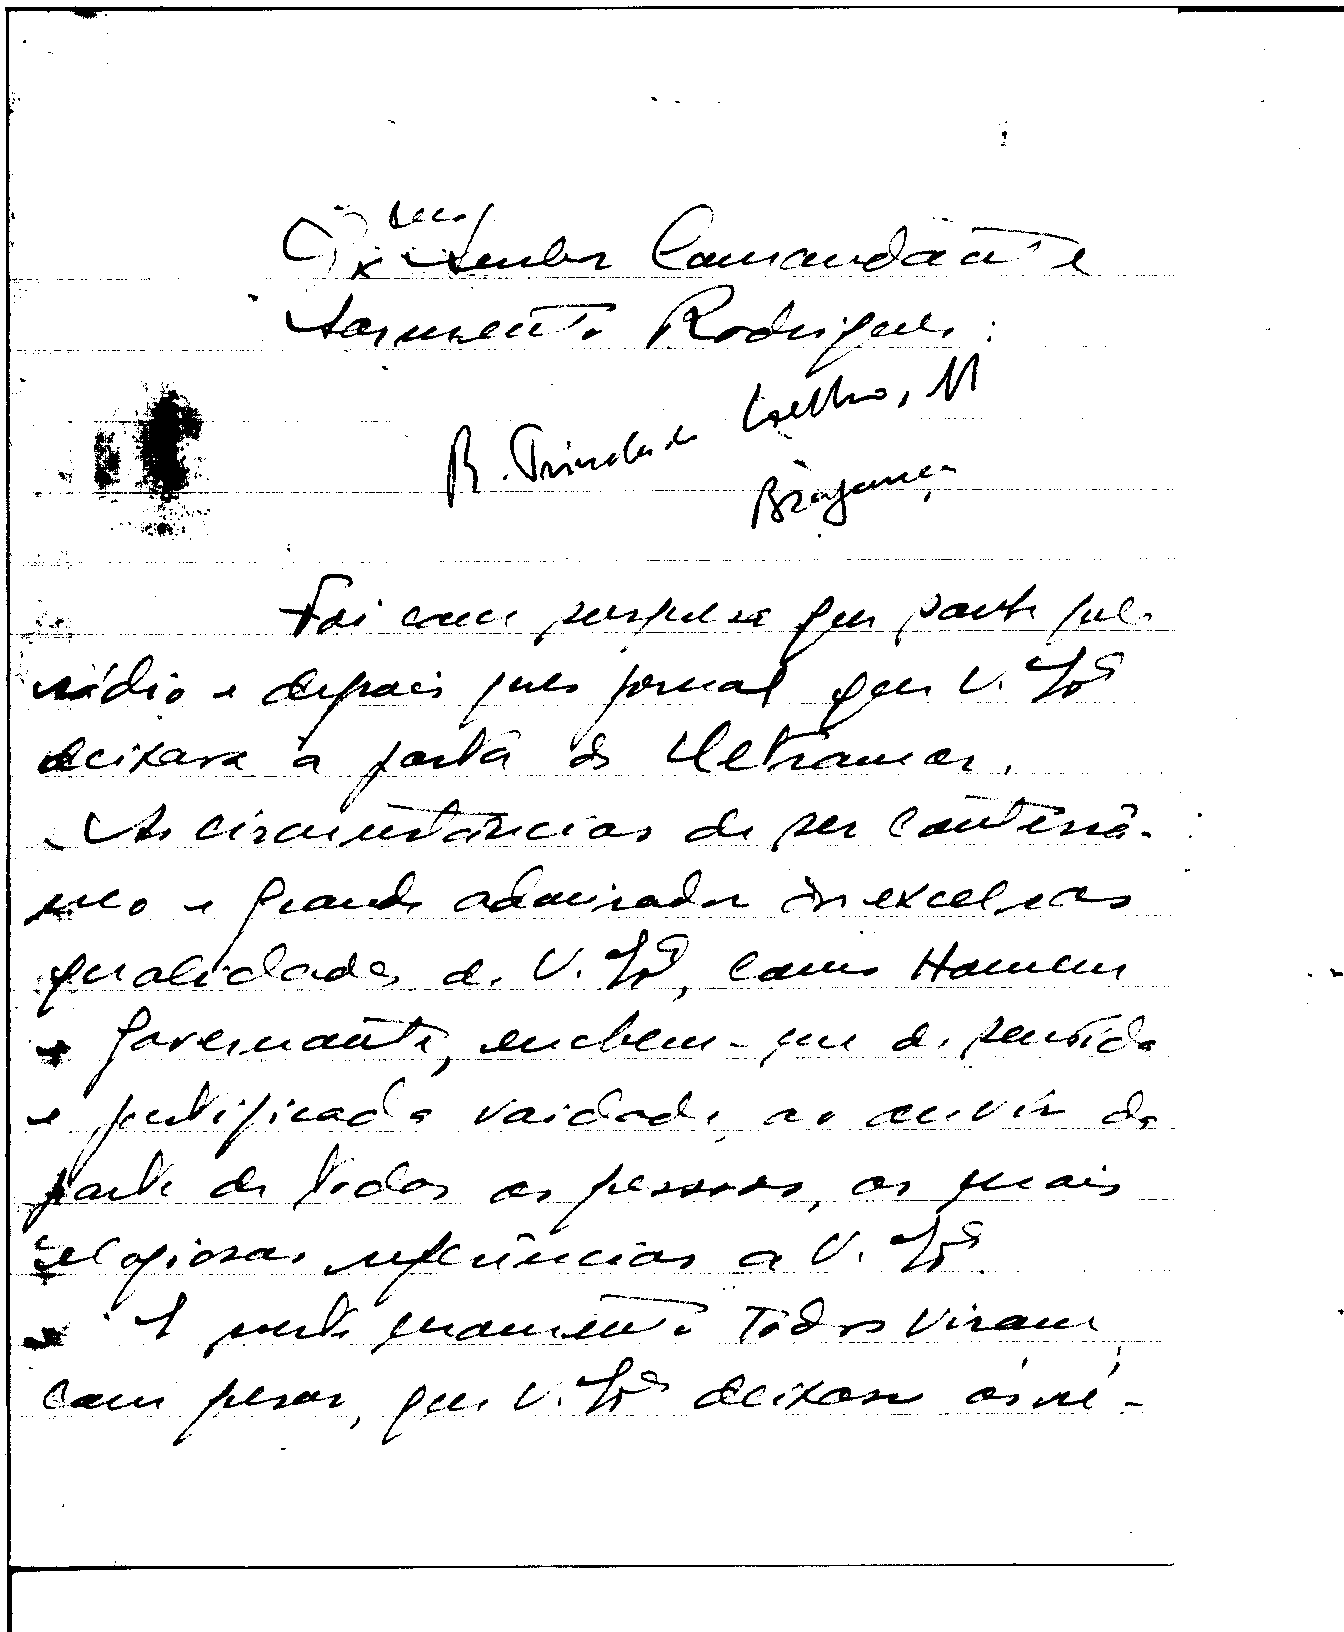 Exmo Senhor Comandante
Sarmento Rodrigues:
R. Trindade Coelho, 11
Bragança
Foi com surpresa que soube pela
rádio e depois pelo jornal que V. Exª
deixara a pasta do Ultramar.
As circunstâncias de ser conterrâ-
neo e grande admirador das excelsas
qualidades de V. Exª, como Homem
e Governante, enchem-me de sentida
e justificada vaidade, ao ouvir da
parte de todas as pessoas, as mais
elogiosas referências a V. Exª
E neste momento todos viram,
com pesar, que V. Exª deixasse as ré-